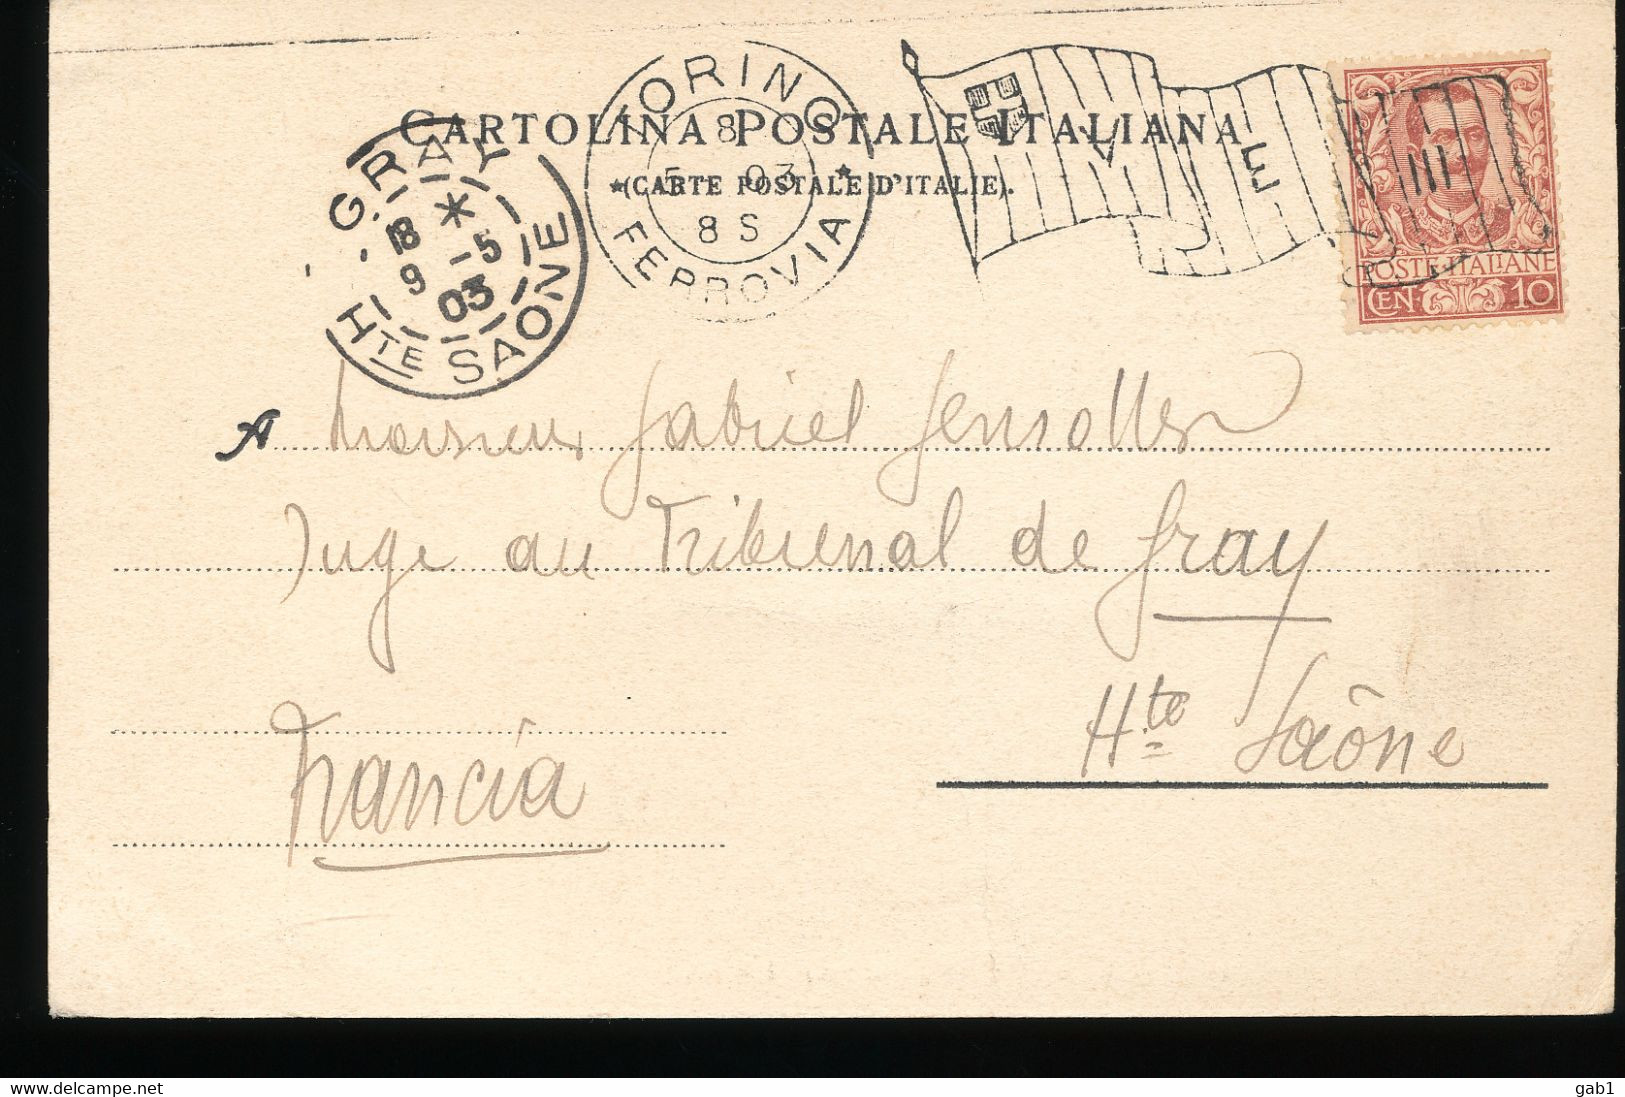 TORINO
8
5 - 03
8 S
FERROVIA
CARTOLINA POSTALE ITALIANA
(CARTE POSTALE D'ITALIE).
GRAY
18
9 -5
03
HTE SAÔNE
POSTE ITALIANE
CEN. 10
A Monsieur Gabriel Gensollen
Juge au Tribunal de Gray
Hte Saône
Francia
www.delcampe.net
gab1